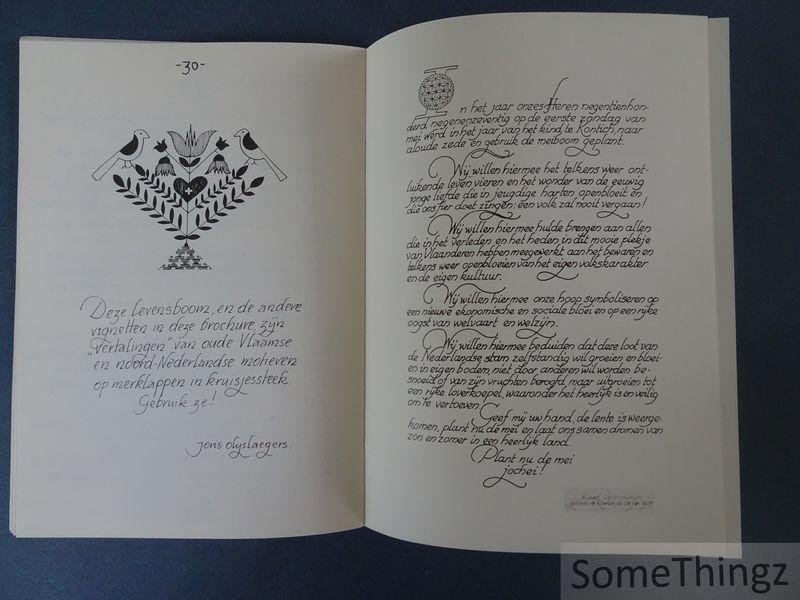 -30-
Deze levensboom, en de andere
vignetten in deze brochure, zijn
"vertalingen" van oude Vlaamse
en noord-Nederlandse motieven
op merklappen in kruisjessteek.
Gebruik ze!
jons olyslaegers.
In het jaar onzes Heren negentienhon-
derd negenenzeventig op de eerste zondag van
mei werd in het jaar van het kind te Kontich, naar
aloude zede en gebruik de meiboom geplant.
Wij willen hiermee het telkens weer ont-
luikende leven vieren en het wonder van de eeuwig
jonge liefde die in jeugdige harten openbloeit en
die ons fier doet zingen: een volk zal nooit vergaan!
Wij willen hiermee hulde brengen aan allen
die in het verleden en het heden, in dit mooie plekje
van Vlaanderen hebben meegewerkt aan het bewaren en
telkens weer openbloeien van het eigen volkskarakter
en de eigen kultuur.
Wij willen hiermee onze hoop symboliseren op
een nieuwe ekonomische en sociale bloei en op een rijke
oogst van welvaart en welzijn.
Wij willen hiermee beduiden dat deze loot van
de Nederlandse stam zelfstandig wil groeien en bloei-
en in eigen bodem, niet door anderen wil worden be-
snoeid of van zijn vruchten beroofd, maar uitgroeien tot
een rijke loverkoepel, waaronder het heerlijk is en veilig
om te vertoeven.
Geef mij uw hand, de lente is weerge-
komen, plant nu de mei en laat ons samen dromen van
zon en zomer in een heerlijk land.
Plant nu de mei
jochei!
Karel
SomeThingz